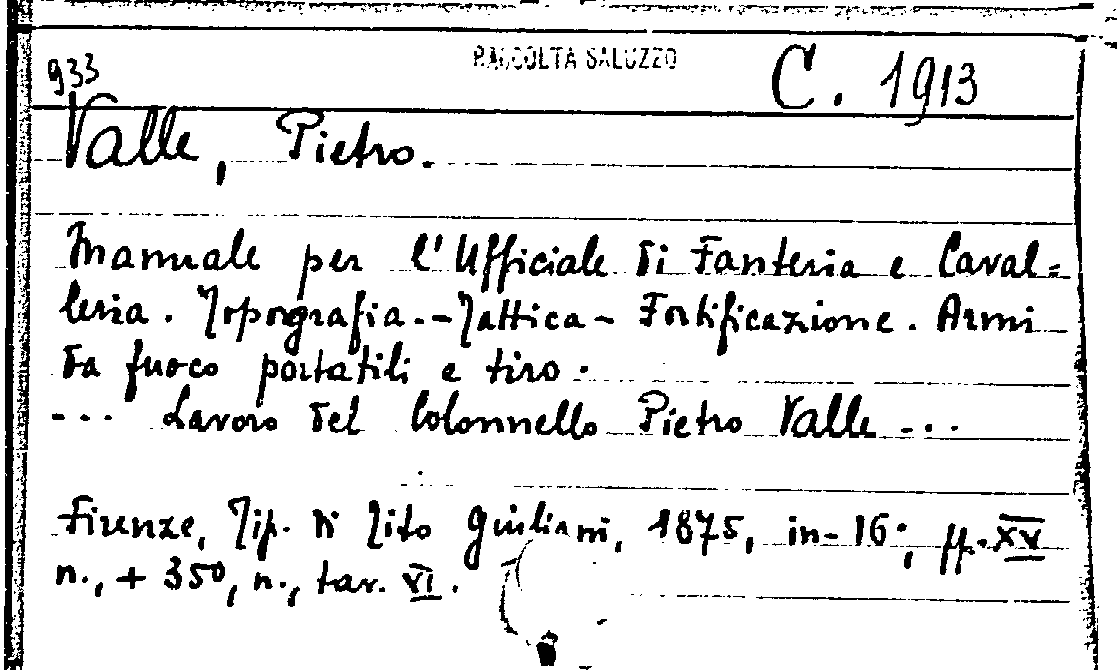 RACCOLTA SALUZZO
933
C. 1913
Valle, Pietro.
Manuale per l'Ufficiale di Fanteria e Caval=
leria. Topografia.-Tattica- Fortificazione. Armi
da fuoco portatili e tiro.
... Lavoro del Colonnello Pietro Valle ...
Firenze, Tip. di Tito Giuliani, 1875, in-16°, pp. XV
n., + 350, n., tav. VI.